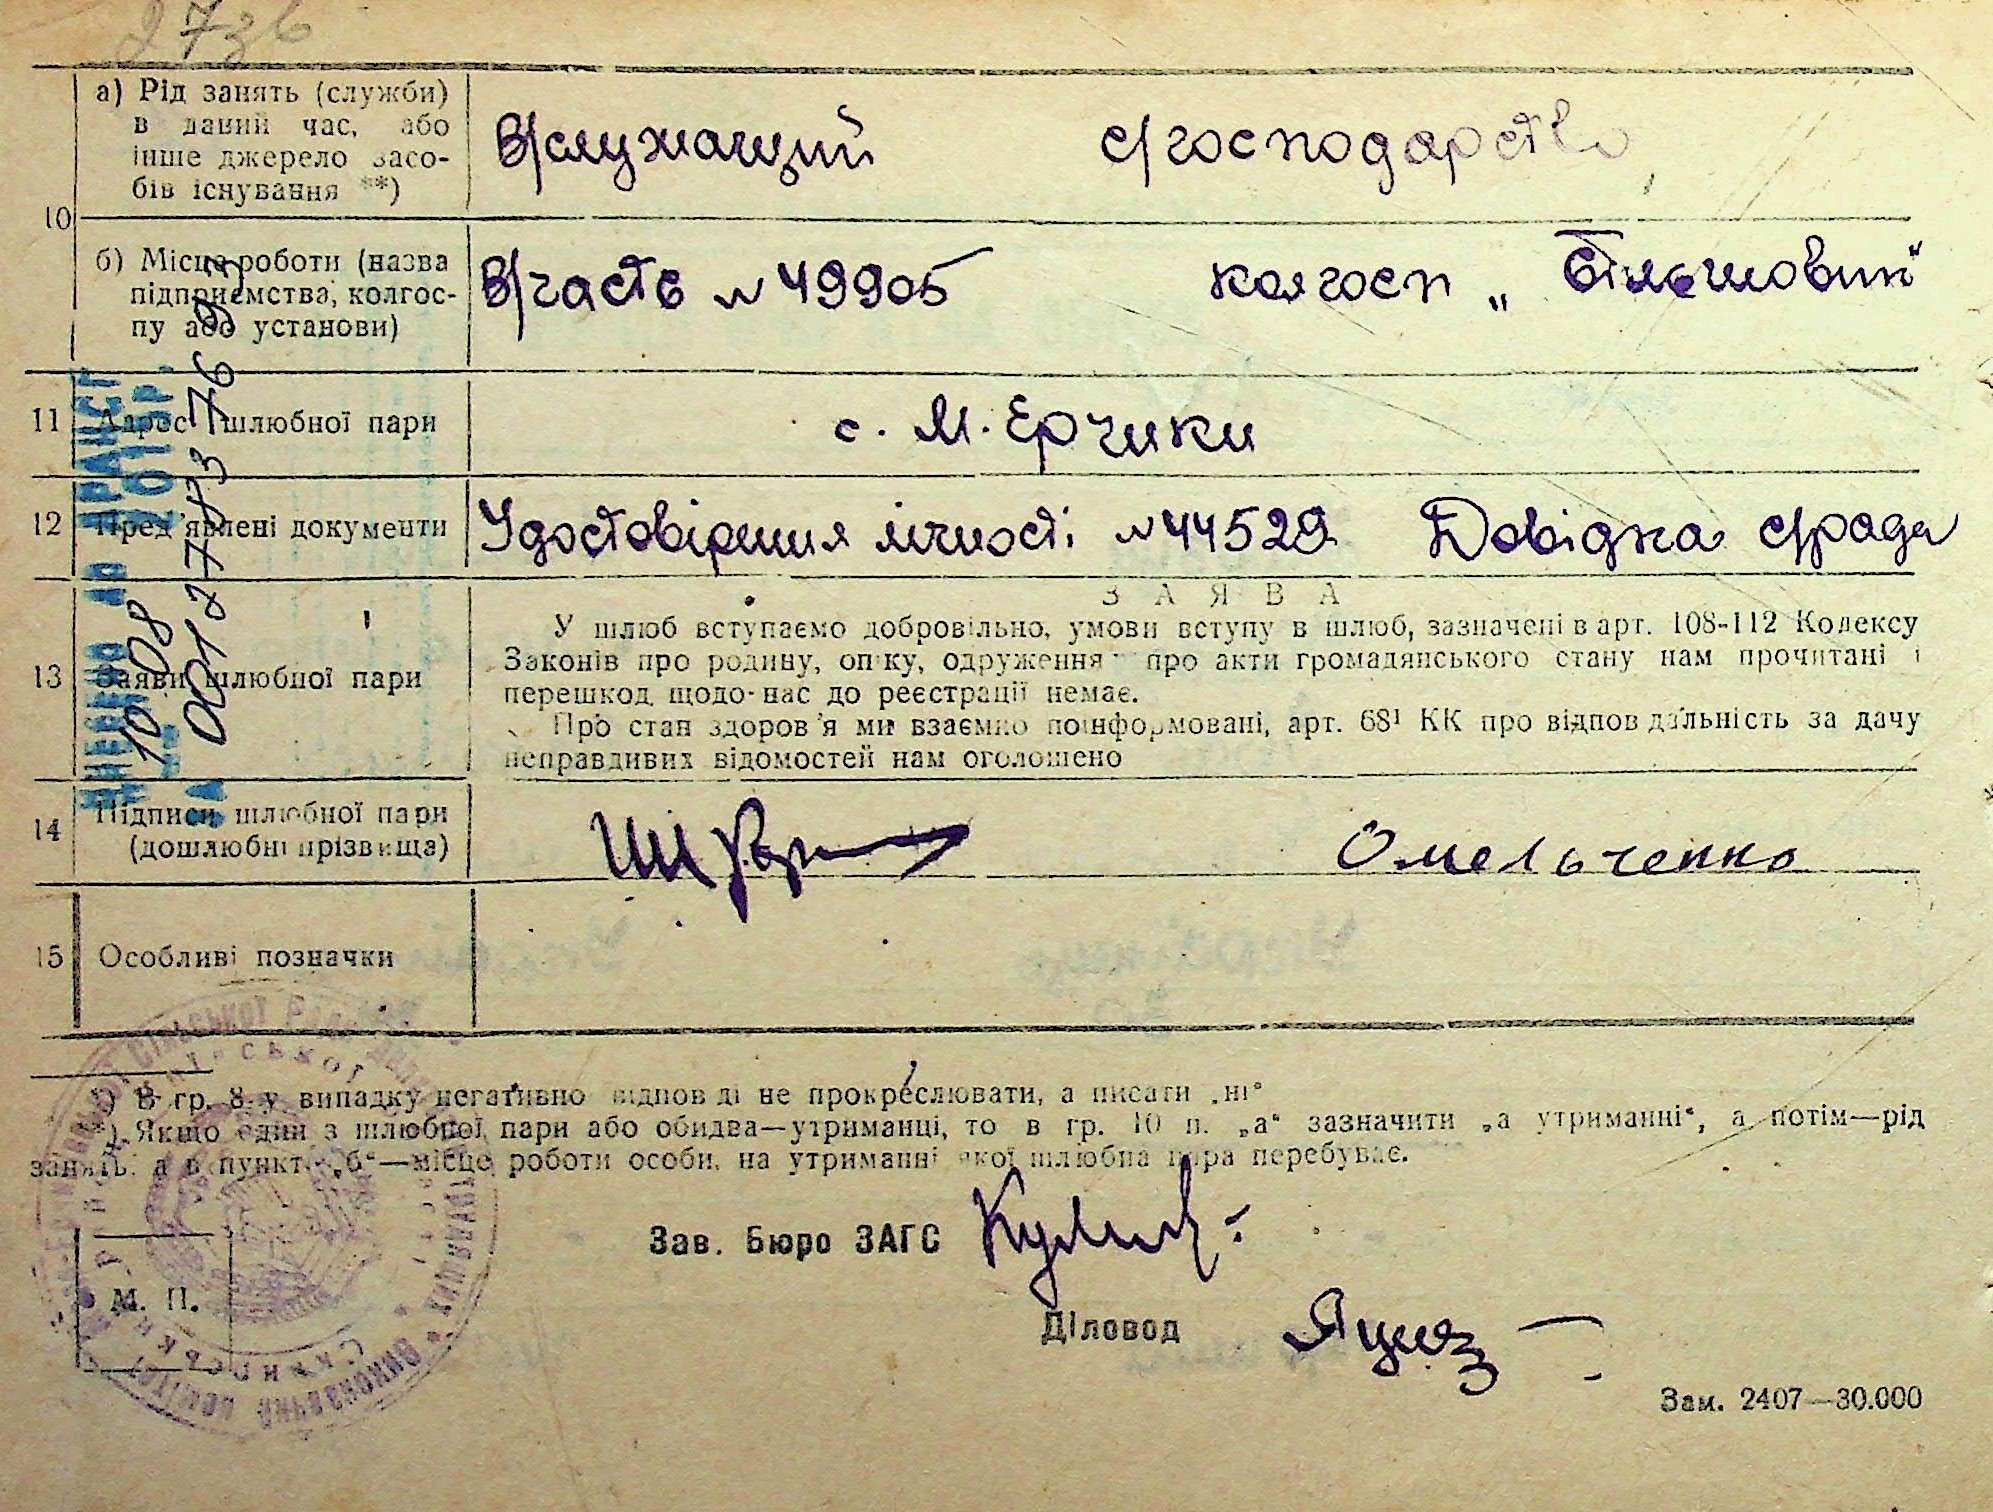 2736
а) Рід занять (служби)
в даний час, або
інше джерело засо-
бів існування **)
В/служащий с/господарство
10
б) Місце роботи (назва
підприємства, колгос-
пу або установи)
В/часть № 49905 колгосп „Більшовик“
11 Адрес шлюбної пари
с. М. Єрчики
12 Пред'явлені документи
Удостовірення лічності №44529 Довідка с/ради
ЗАЯВА
13 Заяви шлюбної пари
У шлюб вступаємо добровільно, умови вступу в шлюб, зазначені в арт. 108-112 Кодексу
Законів про родину, опіку, одруження про акти громадянського стану нам прочитані і
перешкод щодо нас до реєстрації немає.
Про стан здоров'я ми взаємно поінформовані, арт. 68¹ КК про відповідальність за дачу
неправдивих відомостей нам оголошено
14 Підписи шлюбної пари
(дошлюбні прізвища)
Омельченко
15 Особливі позначки
ВНЕСЕНО ДО ДРАЦСГ
10.08 201 р.
*) В гр. 8 у випадку негативно відповіді не прокреслювати, а писати „ні“
**) Якщо один з шлюбної пари або обидва—утриманці, то в гр. 10 п. „а“ зазначити „а утриманні“, а потім—рід
занять, а в пункті „б“—місце роботи особи, на утриманні якої шлюбна пара перебуває.
Зав. Бюро ЗАГС
М. П.
Діловод
Зам. 2407—30.000